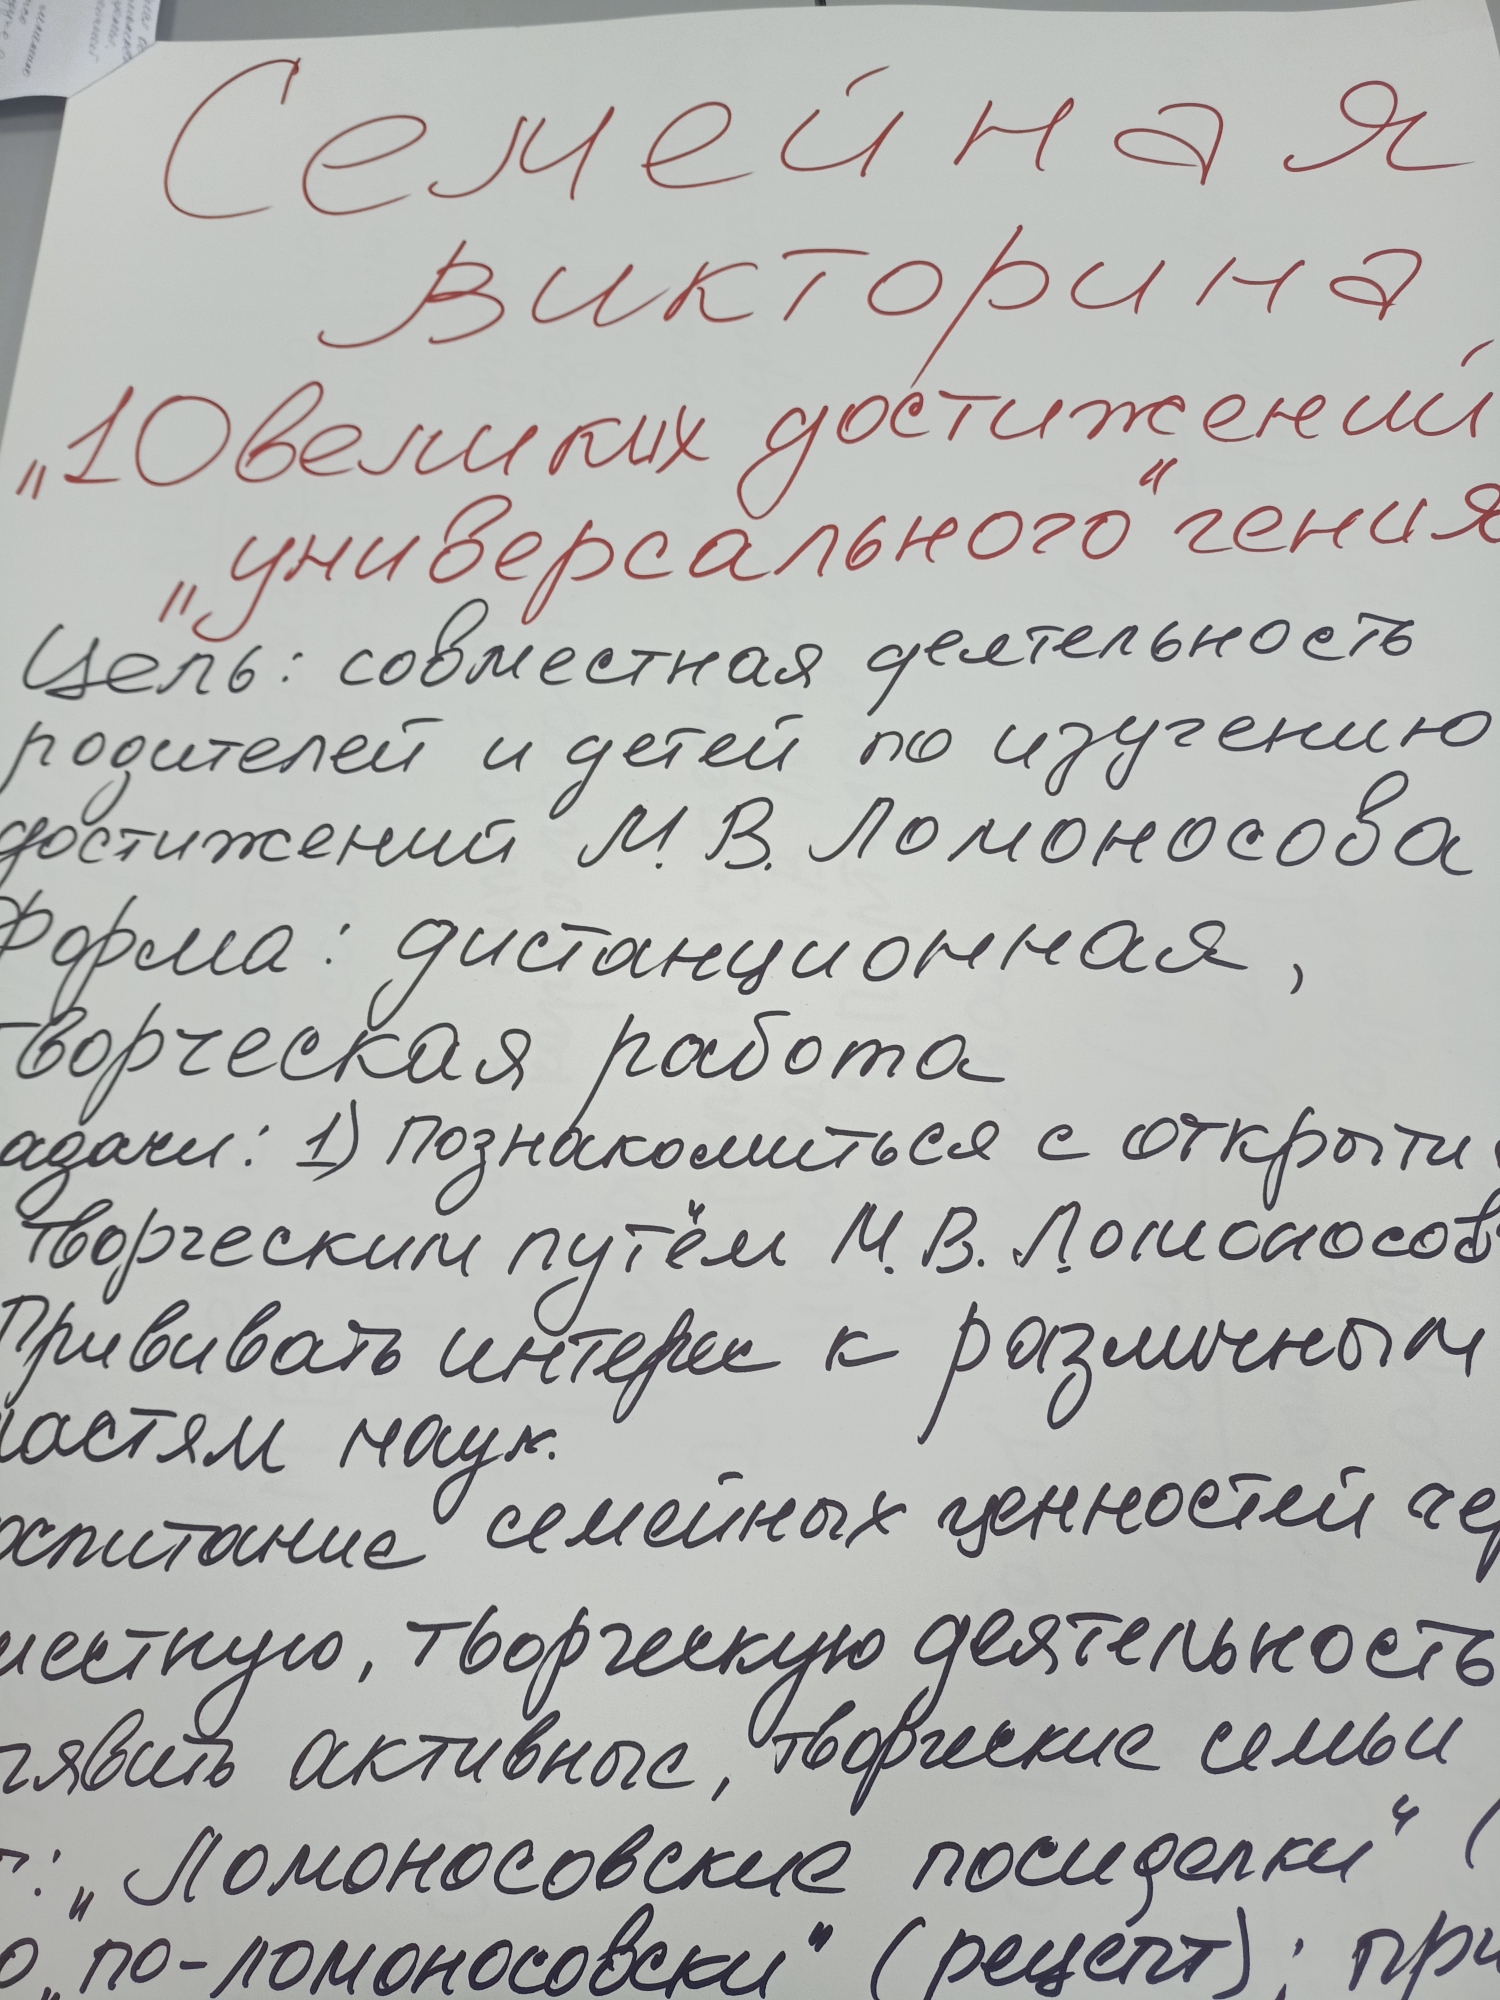 Семейная
викторина
„10 великих достижений
„универсального“ гения
Цель: совместная деятельность
родителей и детей по изучению
достижений М. В. Ломоносова
Форма: дистанционная,
творческая работа
адачи: 1) познакомиться с откры­ти
творческим путём М. В. Ломоносов
Прививать интерес к различным
ластям наук.
оспитание семейных ценностей чер
местную, творческую деятельность
ыявить активные, творческие семьи
т: „Ломоносовские посиделки“ (
о „по-ломоносовски“ (рецепт); при